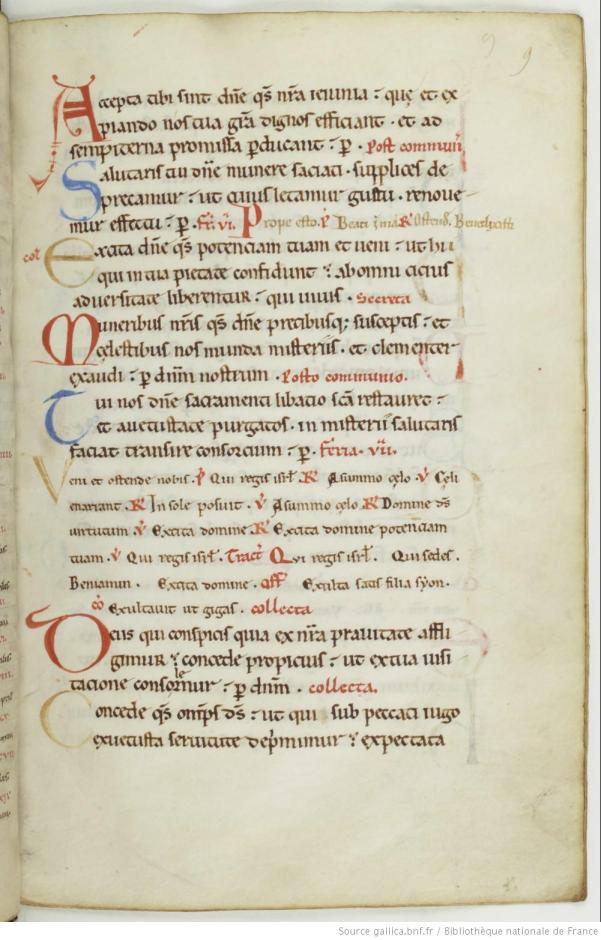 9 9
Accepta tibi sint dn̄e q̄s nr̄a ieiunia : quę et ex
piando nos tua gr̄a dignos efficiant · et ad
sempiterna promissa ꝑducant : ꝑ · Post communi
Salutaris tui dn̄e munere saciati · supplices de
precamur : ut cuius letamur gustu · renoue
mur effectu : ꝑ · Fr̄. vi. Prope esto. ꝟ Beati īma R̸ Ostend. Benedixisti
coƚ Excita dn̄e q̄s potenciam tuam et ueni : ut hii
qui in tua pietate confidunt : ab omni cicius
aduersitate liberentur : qui uiuis · Secreta
Muneribus nr̄is q̄s dn̄e precibusq; susceptis : et
cęlestibus nos munda misteriis · et clementer
exaudi : ꝑ dn̄m nostrum · Post communio.
Tui nos dn̄e sacramenti libacio sc̄a restauret :
et a uetustate purgatos · in misterii salutaris
faciat transire consorcium : ꝑ · Feria · vii.
Veni et ostende nobis · ꝟ Qui regis isrƚ. R̸ A summo cęlo · ꝟ Cęli
enarrant · R̸ In sole posuit · ꝟ A summo cęlo R̸ Domine ds̄
uirtutum · ꝟ Excita domine · R̸ Excita domine potenciam
tuam · ꝟ Qui regis isrƚ. Tract̄ Qui regis isrƚ. Qui sedes.
Beniamin · Excita domine · Off̄ Exulta satis filia syon.
cō Exultauit ut gigas · collecta
Deus qui conspicis quia ex nr̄a prauitate affli
gimur : concede propicius : ut ex tua uisi
tacione consolemur : ꝑ dn̄m · collecta.
Concede q̄s om̄ps ds̄ : ut qui sub peccati iugo
ex uetusta seruitute dep̄mimur : expectata
Source gallica.bnf.fr / Bibliothèque nationale de France